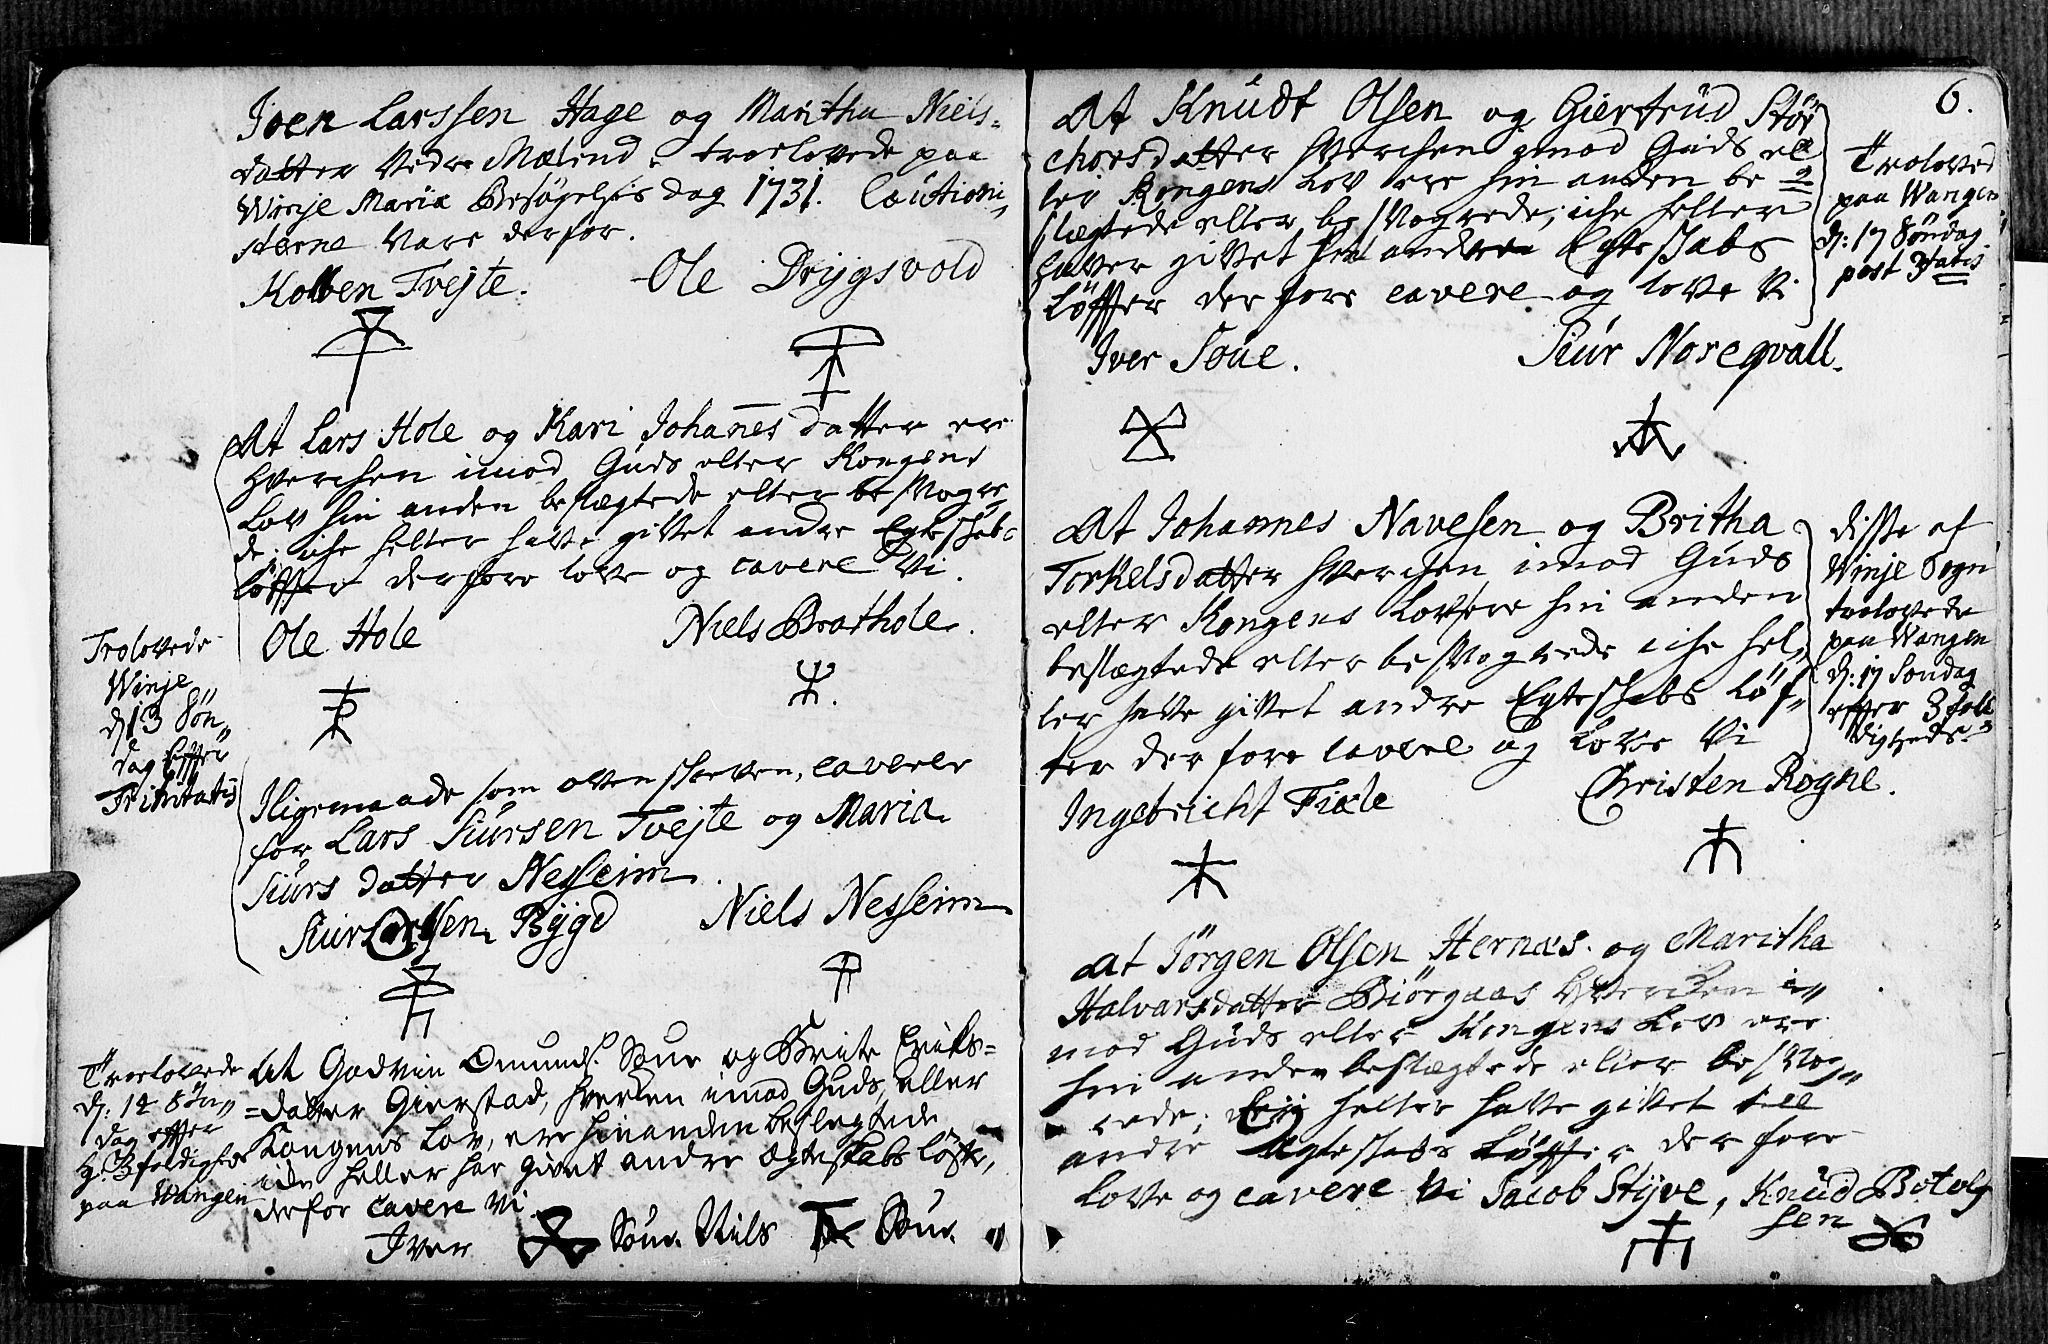 Iver Larssen Hage og Maritha Niels-
datter Vedre Mælend. troelovede paa
Winje Mariæ Besøgelsis Dag 1731. Cautioni-
sterne Vare derfor.
Kolben Tvejte. Ole Drygsvold
At Lars Hole og Kari Johanes datter ere
Hverchen imod Guds eller Kongens
Lov hin anden beslægtede eller besvogre
de; iche heller have givet andre Egteschabs
løffter derfore love og cavere Vi.
Ole Hole Niels Brathole.
Trolovede
Winje
d. 13 Søn-
dag Effter
Trinitatis
Iligemaade som oven skreven, cavere
for Lars Siursen Tvejte og Maria
Siurs datter Nesheim.
Siur Larssen Bygd Niels Nesheim
Troelovede
d: 14 Søn-
dag effter
H. 3foldighed
paa Wangen
At Godvin Omunds. Soue og Brite Eriks-
=datter Gierstad, hverken imod Guds, eller
Kongens Lov, ere hinanden beslegtede
iche heller har givet andre Ægteskabs løfte,
derfor cavere vi
Iver Soue. Nils Soue.
6.
At Knudt Olsen og Giertrud Stør
chorsdatter Hverchen imod Guds el
ler Kongens Lov ere hin anden be
slægtede eller besvogrede; iche heller
haver givet hin andre Egteskabs
Løffter derfore cavere og love Vi
Troloved
paa Wangen
d: 17 Søndag
post 3tatis
Iver Soue. Siur Noreqvall.
At Johannes Navesen og Britha
Torkelsdatter Hverchen imod Guds
eller Kongens Lov ere hin anden
beslægtede eller besvogrede iche hel-
ler have givet andre Egteschabs Løf-
ter derfore cavere og Love Vi
Disse af
Winje Sogn
trolovede
paa Wangen
d: 17 Søndag
effter 3fol
digheds
Ingebricht Fixle Christen Rogne.
At Jørgen Olsen Hernæs. og Maritha
Halvarsdatter Biørgaas Hverchen i-
mod Guds eller Kongens Lov ere
hin anden beslægtede eller besvog-
rede; heller have givet till
andre Ægteschabs Løffter derfore
Love og cavere Vi Jacob Styve, Knud Botolf
sen